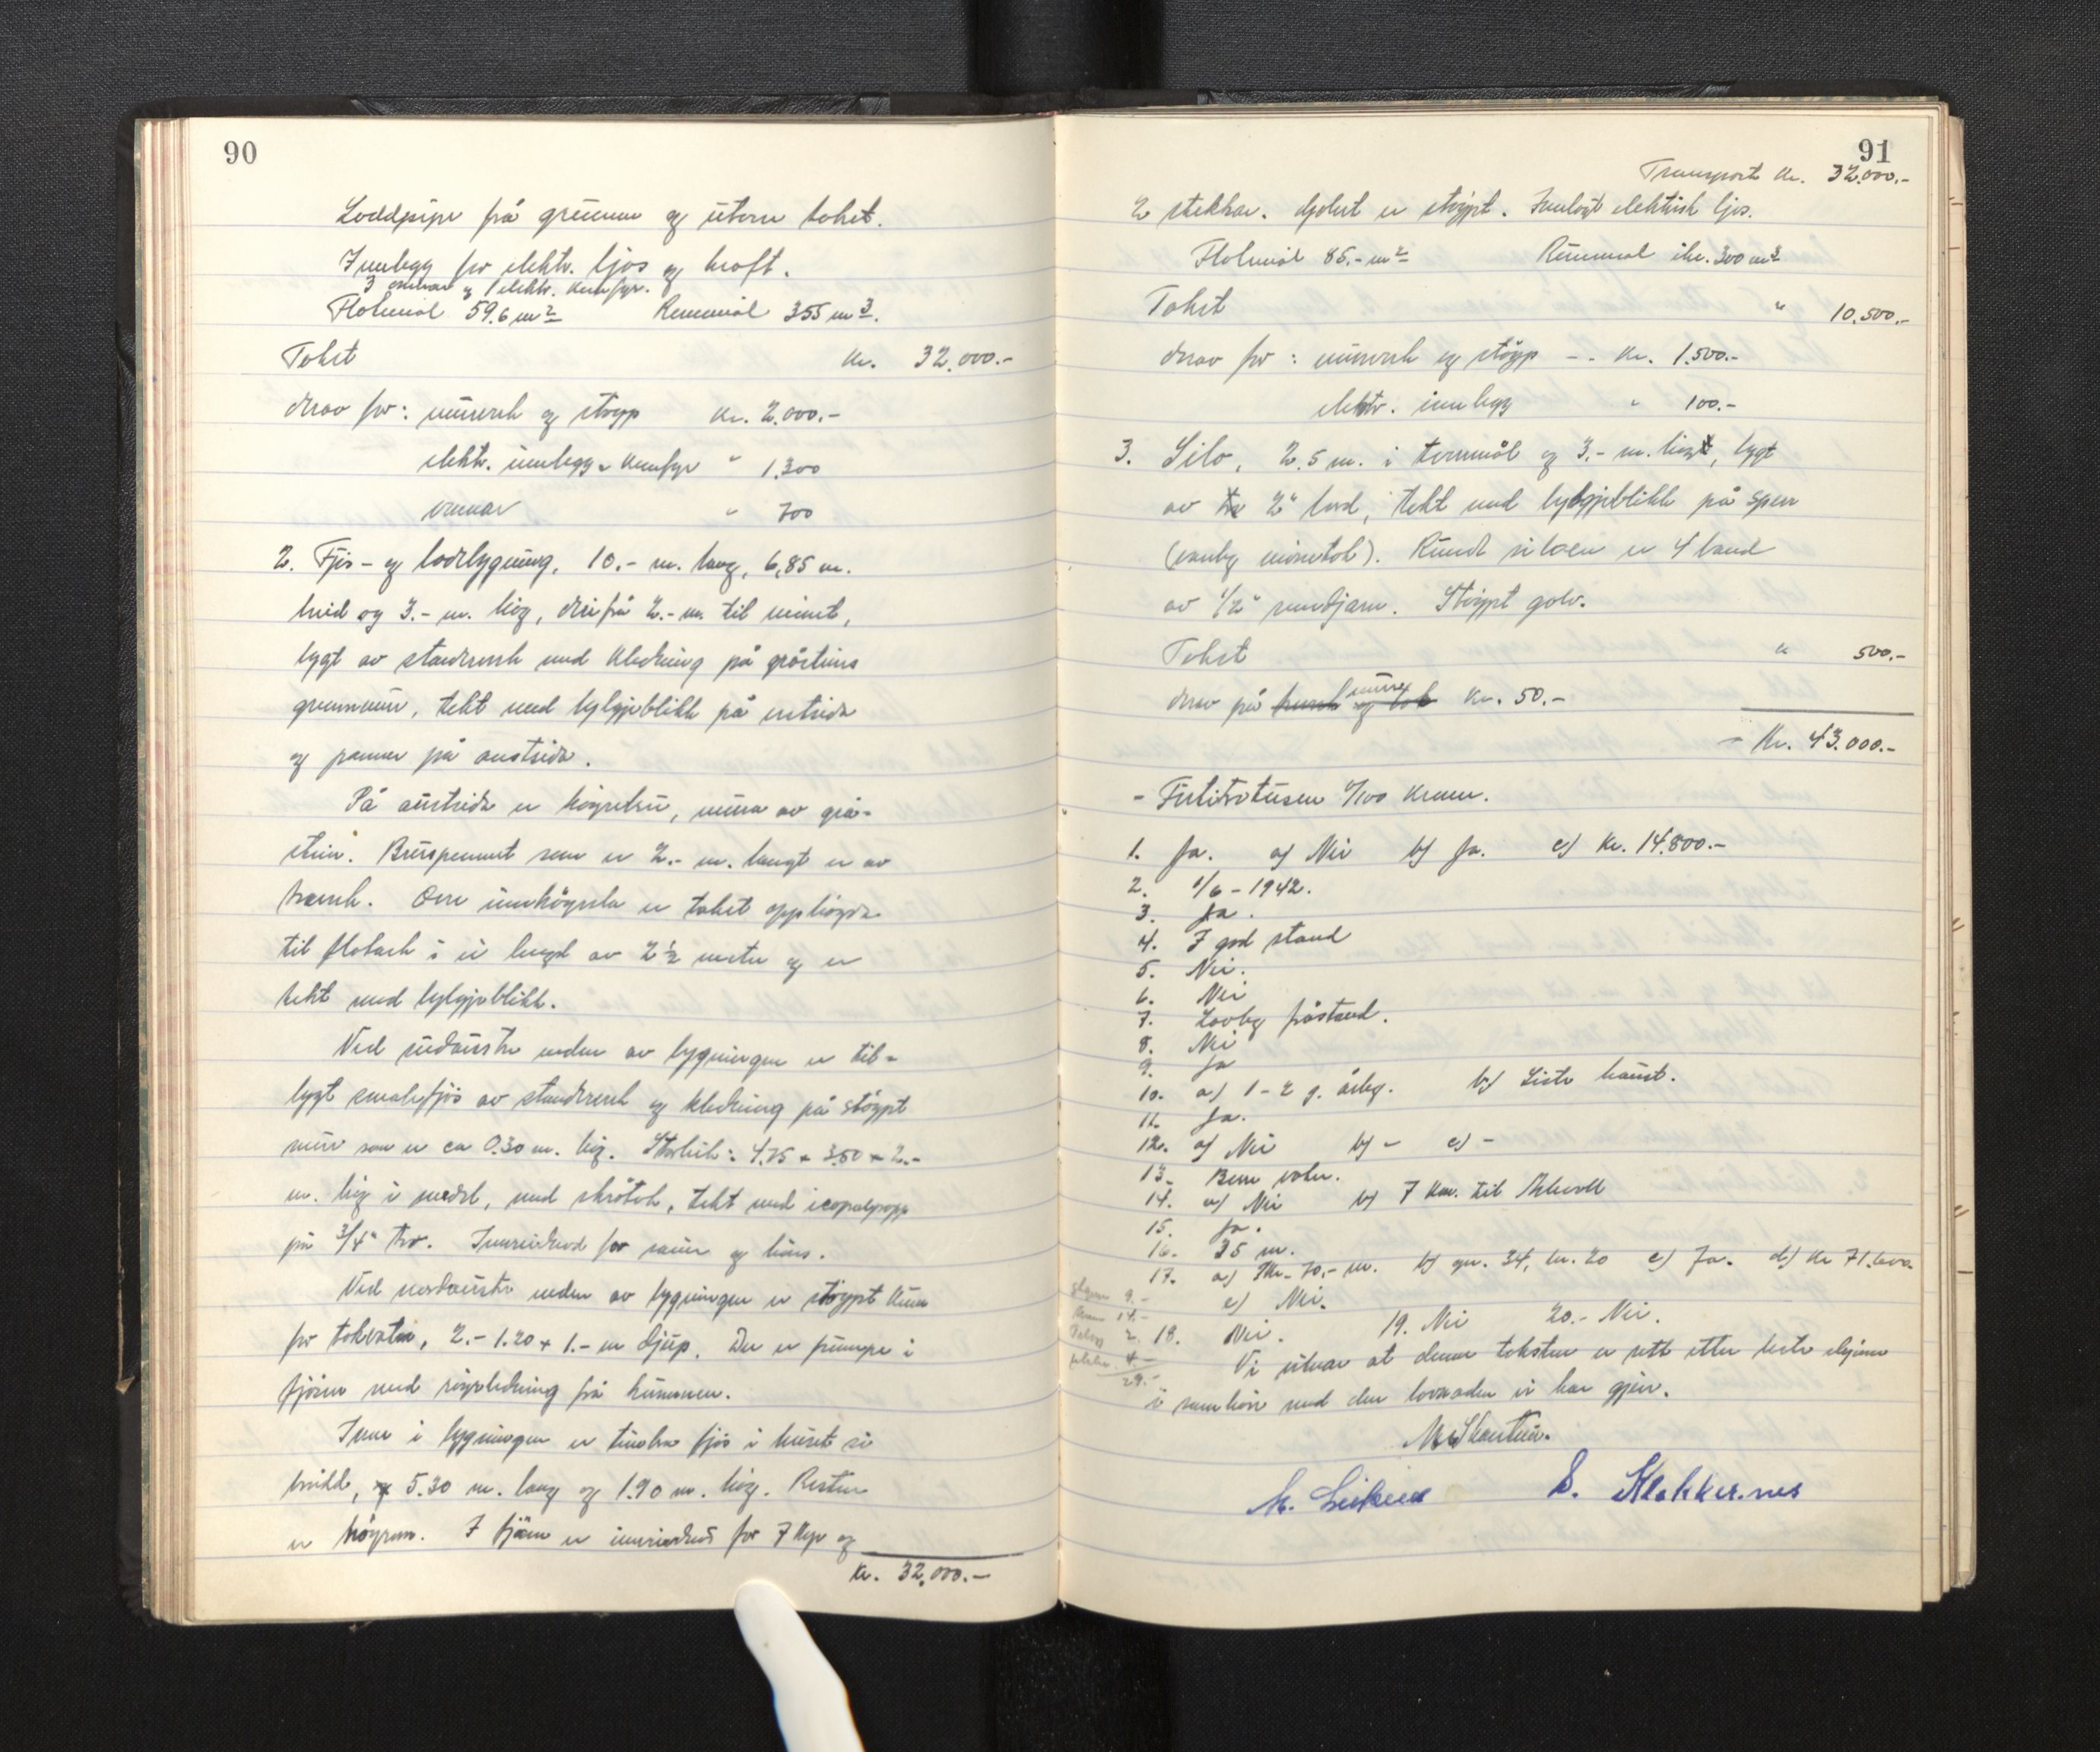 90
Loddpipe frå grunnen og utover taket.
Innlegg for elektr. ljos og kraft.
3 omnar og 1 elektr. komfyr.
Flatemål 59.6 m² Rommål 355 m³.
Takst kr. 32,000.-
derav for: murverk og støyp kr. 2.000.-
elektr. innlegg + komfyr " 1.300
omnar " 700
2. Fjös- og lödebygning, 10.- m. lang, 6,85 m.
breid og 3.- m. høg, derifrå 2.- m. til mønet,
bygt av standverk med kledning på gråsteins
grunnmur, tekt med bylgjeblikk på vestsida
og panner på austsida.
På austsida er høybru, mura av grå-
stein. Bruspennet som er 2.- m. langt er av
treverk. Over innkøyrsla er taket opphøgda
til flatark i ei lengd av 2½ meter og er
tekt med bylgjeblikk.
Ved søraustre enden av bygningen er til-
bygt smalefjös av standverk og kledning på støypt
mur som er ca 0.30 m. høg. Storleik: 4.75 + 3.50 + 2.-
m. høg i medel, med skråtak, tekt med icopalpapp
på 3/4" tro. Innreidd for sauer og høns.
Ved nordaustre enden av bygningen er støypt kum
for takvatn, 2.- 1.20 + 1.- m djup. Der er pumpe i
fjösen med röyrledning frå kummen.
Inne i bygningen er timbra fjös i huset si
breidd, 5.30 m. lang og 1.90 m. høg. Resten
er høyrom. I fjösen er innreidd for 7 kyr og
Kr. 32,000.-
91
Transport kr. 32.000.-
2 stekkar. Golvet er støypt. Innlagt elektrisk ljos.
Flatemål 85.- m² Rommål ikr. 300 m³
Takst " 10.500.-
derav for: murverk og støyp - - kr. 1.500.-
elektr. innlegg " 100.-
3. Silo, 2.5 m. i tverrmål og 3.- m. høg, bygt
av 2" bord, tekt med bylgjeblikk på sperr
(vanleg mønetak). Rundt siloen er 4 band
av 1/2" rundjarn. Støypt golv.
Takst " 500.-
derav på mur kr. 50.-
- Kr. 43.000.-
- Førtitretusen 0/100 kroner.
1. Ja. a) Nei b) Ja. c) kr. 14.800.-
2. 1/6 - 1942.
3. Ja.
4. I god stand
5. Nei.
6. Nei
7. Lovleg påstand.
8. Nei
9. Ja
10. a) 1-2 g. årleg. b) Siste haust.
11. Ja.
12. a) Nei b) - c) -
13. Berre vatn.
14. a) Nei b) 7 km. til
15. Ja.
16. 35 m.
17. a) Ikr. 70.- m. b) gnr. 34, br. 20 c) Ja. d) Kr 71.600.
e) Nei.
9.-
14.-
2.
4.-
29.-
18. Nei. 19. Nei 20.- Nei.
Vi vitnar at denne taksten er rett etter beste skjønn
i samhøve med den lovnaden vi har gjeve.
S. Klokkernes